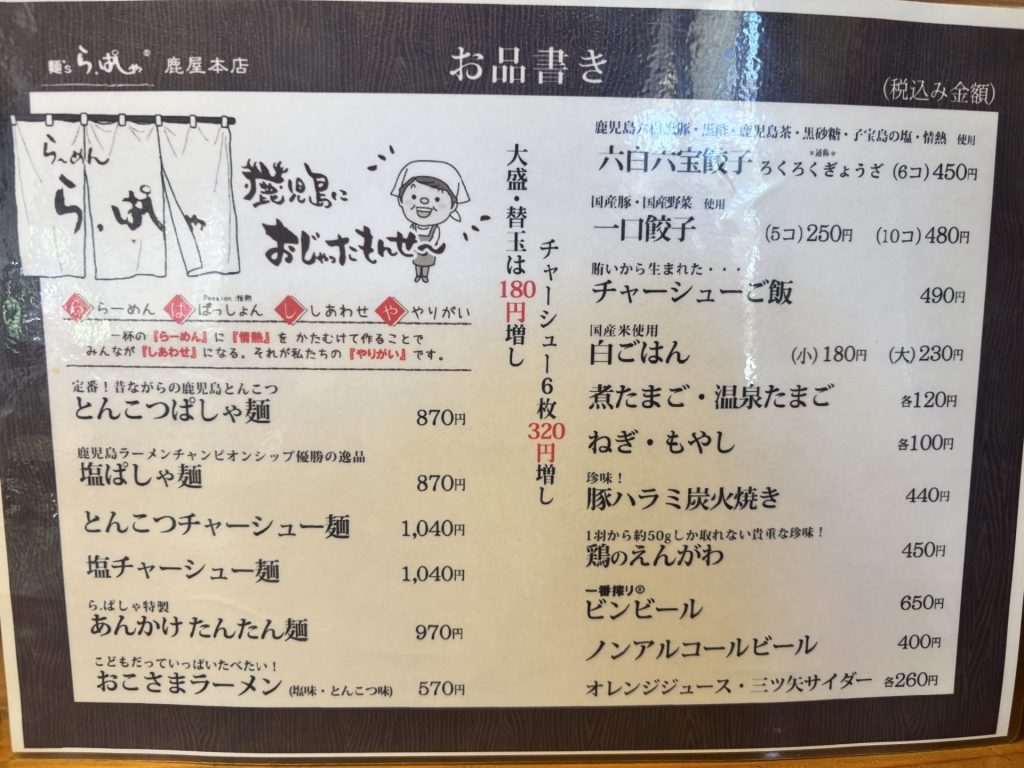 麺's ら.ぱしゃ® 鹿屋本店
お品書き
(税込み金額)
らーめん
ら.ぱしゃ
鹿児島に
おじゃったもんせ〜
Passion 情熱
ら らーめん ぱ ぱっしょん し しあわせ や やりがい
一杯の『らーめん』に『情熱』を かたむけて作ることで
みんなが『しあわせ』になる。それが私たちの『やりがい』です。
定番!昔ながらの鹿児島とんこつ
とんこつぱしゃ麺 870円
鹿児島ラーメンチャンピオンシップ優勝の逸品
塩ぱしゃ麺 870円
とんこつチャーシュー麺 1,040円
塩チャーシュー麺 1,040円
ら.ぱしゃ特製
あんかけ たんたん麺 970円
こどもだっていっぱいたべたい!
おこさまラーメン (塩味・とんこつ味) 570円
大盛・替玉は180円増し
チャーシュー6枚320円増し
鹿児島六白黒豚・黒酢・鹿児島茶・黒砂糖・子宝島の塩・情熱 使用
*通称*
六白六宝餃子 ろくろくぎょうざ (6コ) 450円
国産豚・国産野菜 使用
一口餃子 (5コ) 250円 (10コ) 480円
賄いから生まれた・・・
チャーシューご飯 490円
国産米使用
白ごはん (小) 180円 (大) 230円
煮たまご・温泉たまご 各120円
ねぎ・もやし 各100円
珍味!
豚ハラミ炭火焼き 440円
1羽から約50gしか取れない貴重な珍味!
鶏のえんがわ 450円
一番搾り®
ビンビール 650円
ノンアルコールビール 400円
オレンジジュース・三ツ矢サイダー 各260円